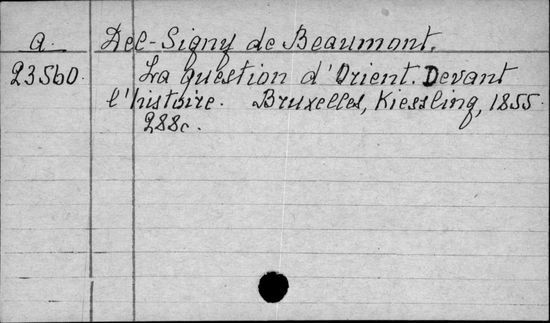 a. Del-Signy de Beaumont.
23560. La question d'Orient. Devant
l'histoire. Bruxelles, Kiessling, 1855.
288c.